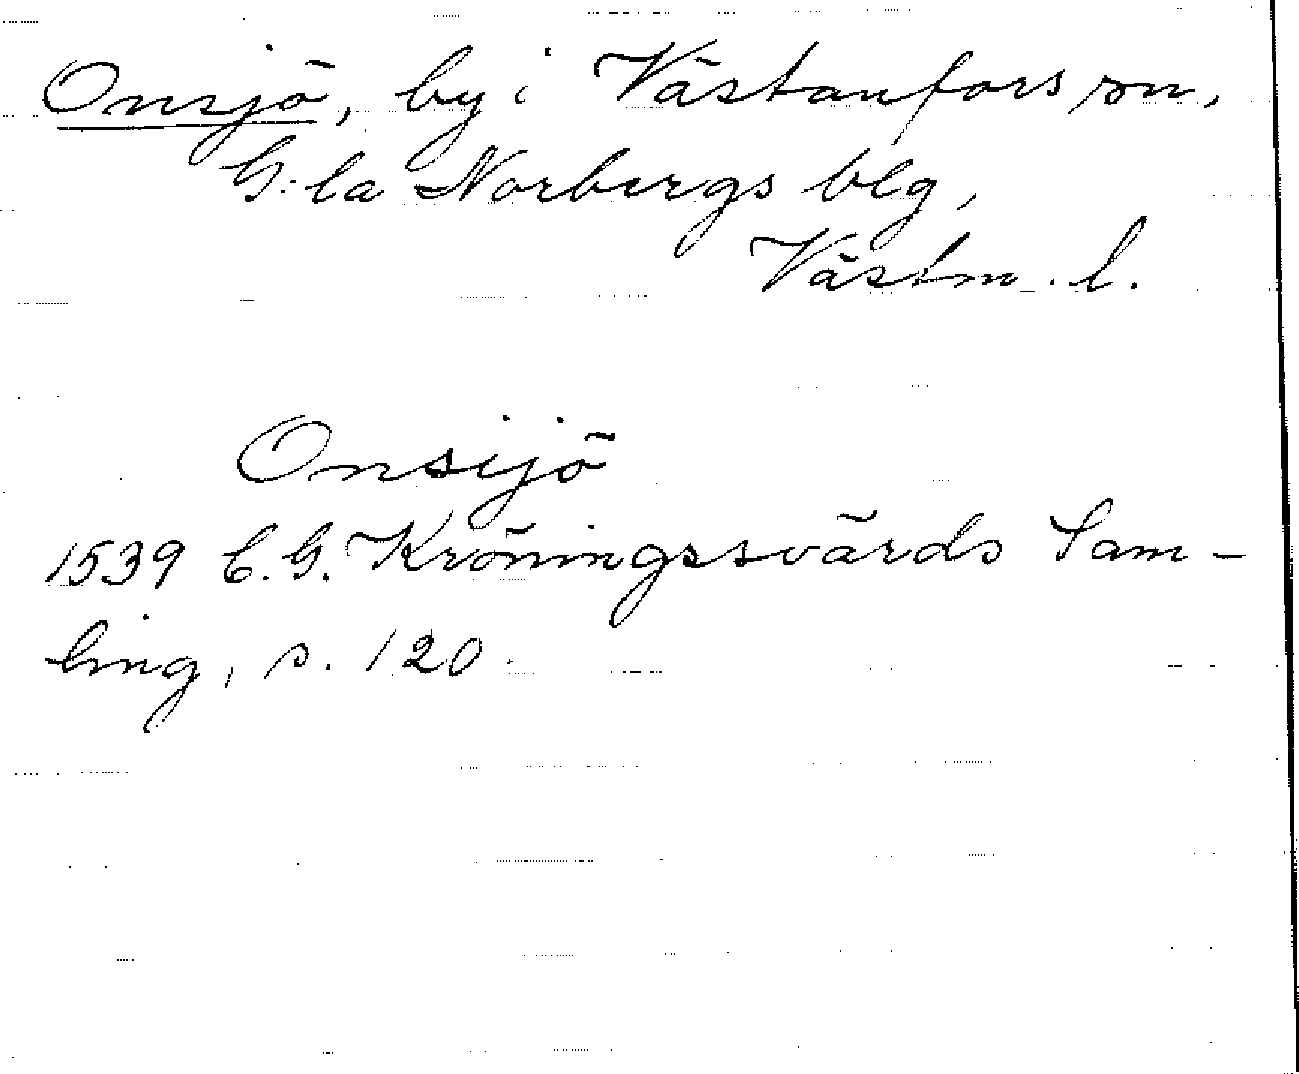 Onsjö, by i Västanfors sn,
G:la Norbergs blg,
Västm. l.
Onsijö
1539 C.G. Kröningssvärds Sam-
ling, s. 120.